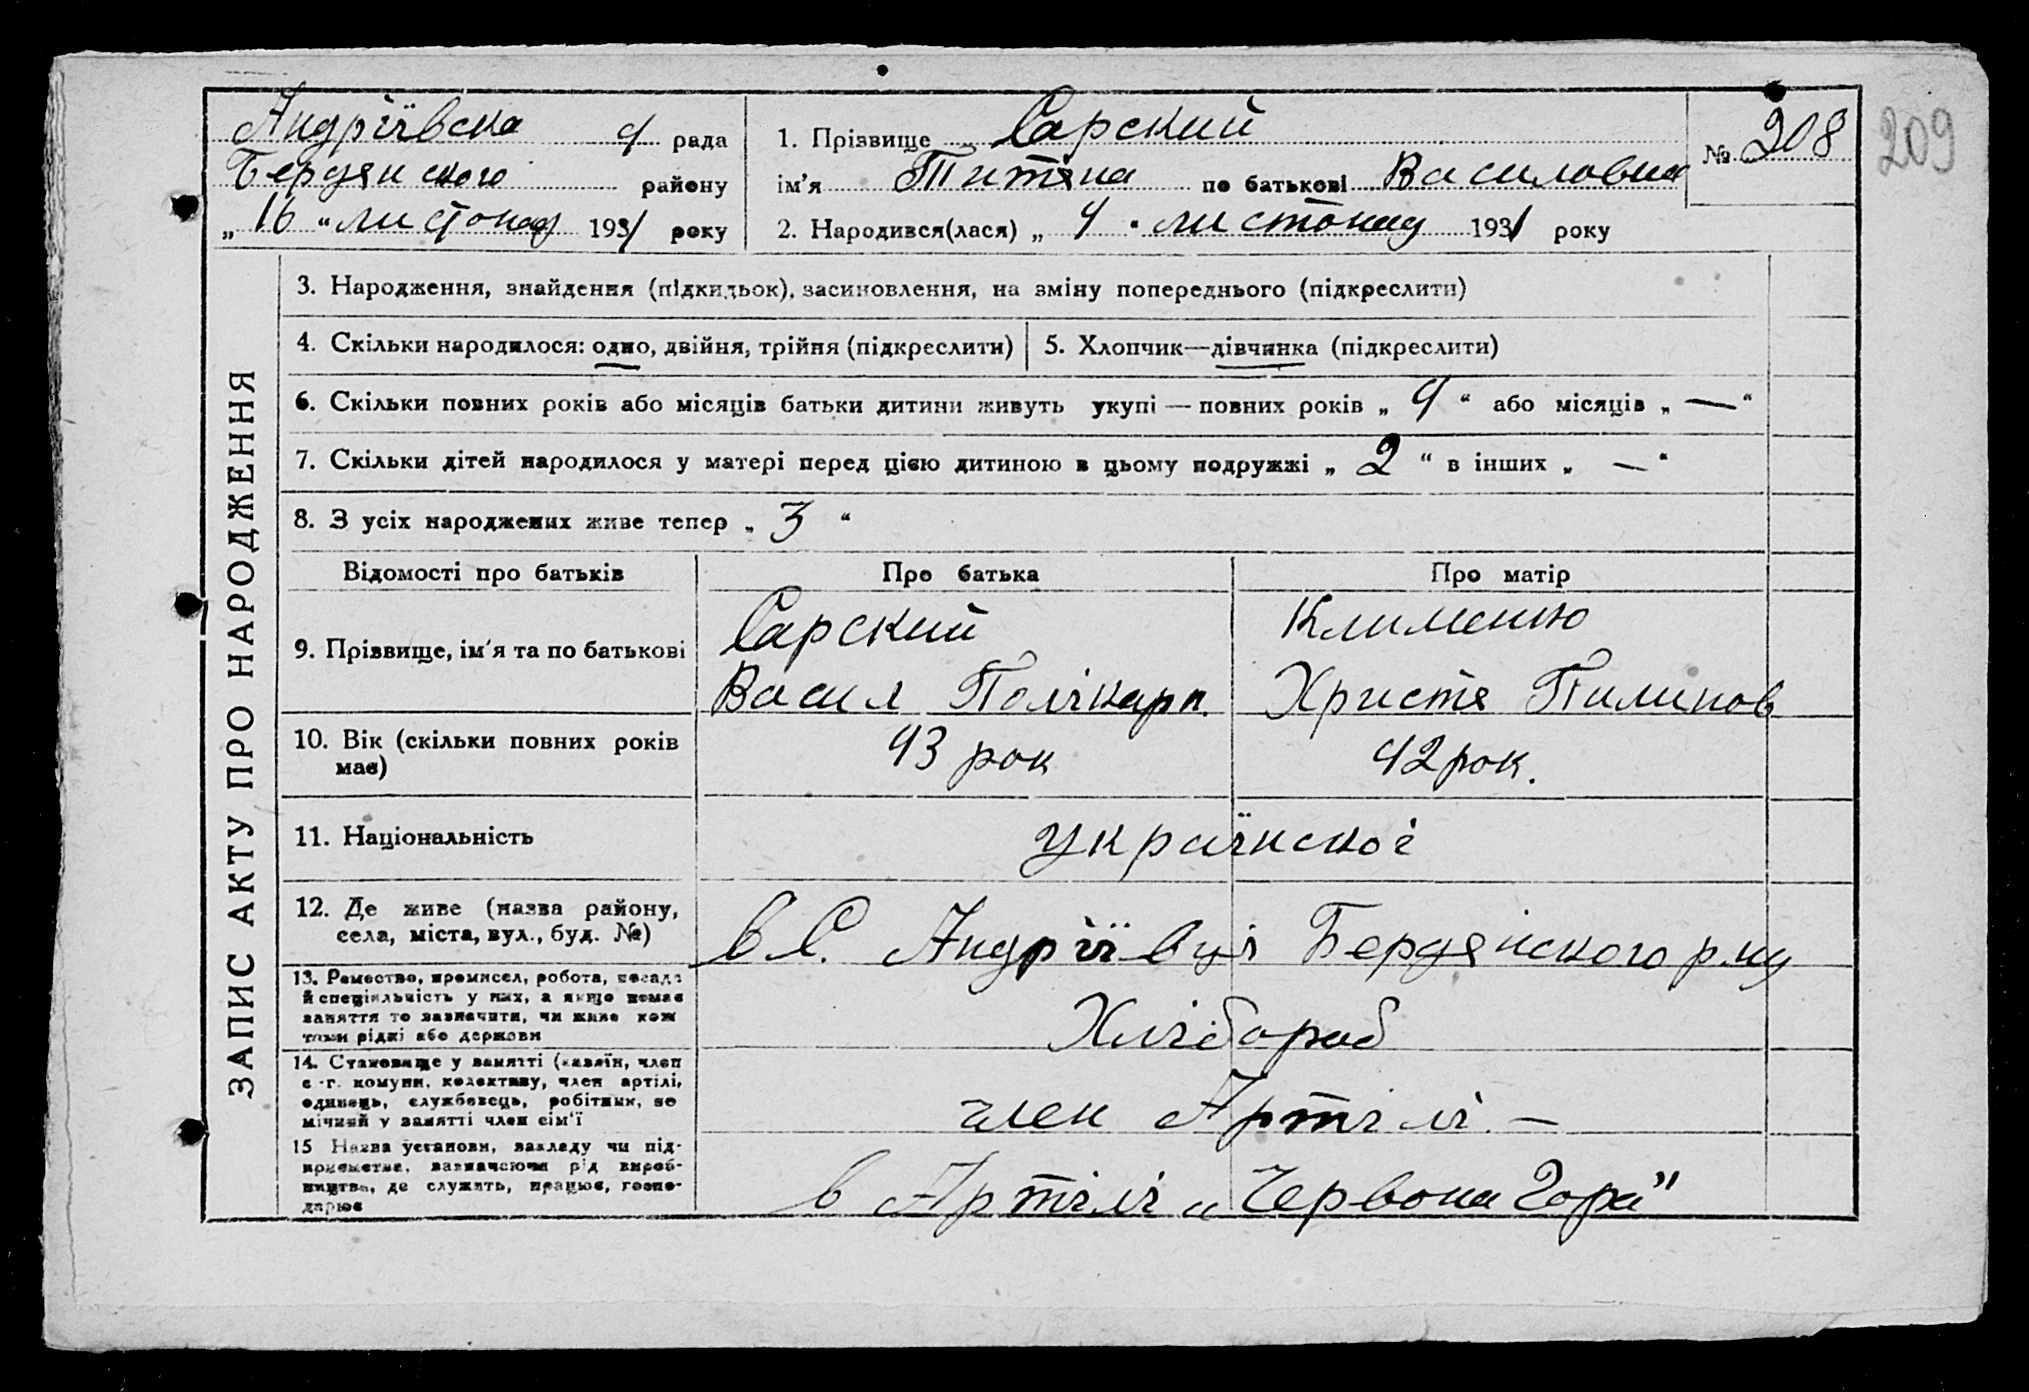 Андріївска с/ рада
Бердянского району
„ 16 “ листопад 1931 року
1. Прізвище Сарский
ім’я Титяна по батькові Василовна
2. Народився(лася) „ 4 “ листопад 1931 року
№ 208
209
ЗАПИС АКТУ ПРО НАРОДЖЕННЯ
3. Народження, знайдення (підкидьок), засиновлення, на зміну попереднього (підкреслити)
4. Скільки народилося: одно, двійня, трійня (підкреслити)
5. Хлопчик—дівчинка (підкреслити)
6. Скільки повних років або місяців батьки дитини живуть укупі — повних років „ 9 “ або місяців „ — “
7. Скільки дітей народилося у матері перед цією дитиною в цьому подружжі „ 2 “ в інших „ — “
8. З усіх народжених живе тепер „ 3 “
Відомості про батьків
Про батька
Про матір
9. Прізвище, ім’я та по батькові
Сарский
Васил Полікарп.
Клименко
Христя Пилипов
10. Вік (скільки повних років
має)
43 рок
42 рок.
11. Національність
українскої
12. Де живе (назва району,
села, міста, вул., буд. №)
в С. Андріївці Бердянского р-ну
13. Ремество, промисел, робота, посада
й спеціяльність у них, а якщо немає
заняття то зазначити, чи живе кош
тами рідні або держави
Хлібороб
14. Становище у занятті (хазяїн, член
с.-г. комуни, колективу, член артілі,
одинець, службовець, робітник, по
мічний у занятті член сім’ї
член Артілі —
15 Назва установи, закладу чи під-
приємства, зазначаючи рід вироб-
ництва, де служить, працює, госпо-
дарює
в Артілі „Червона Гора”